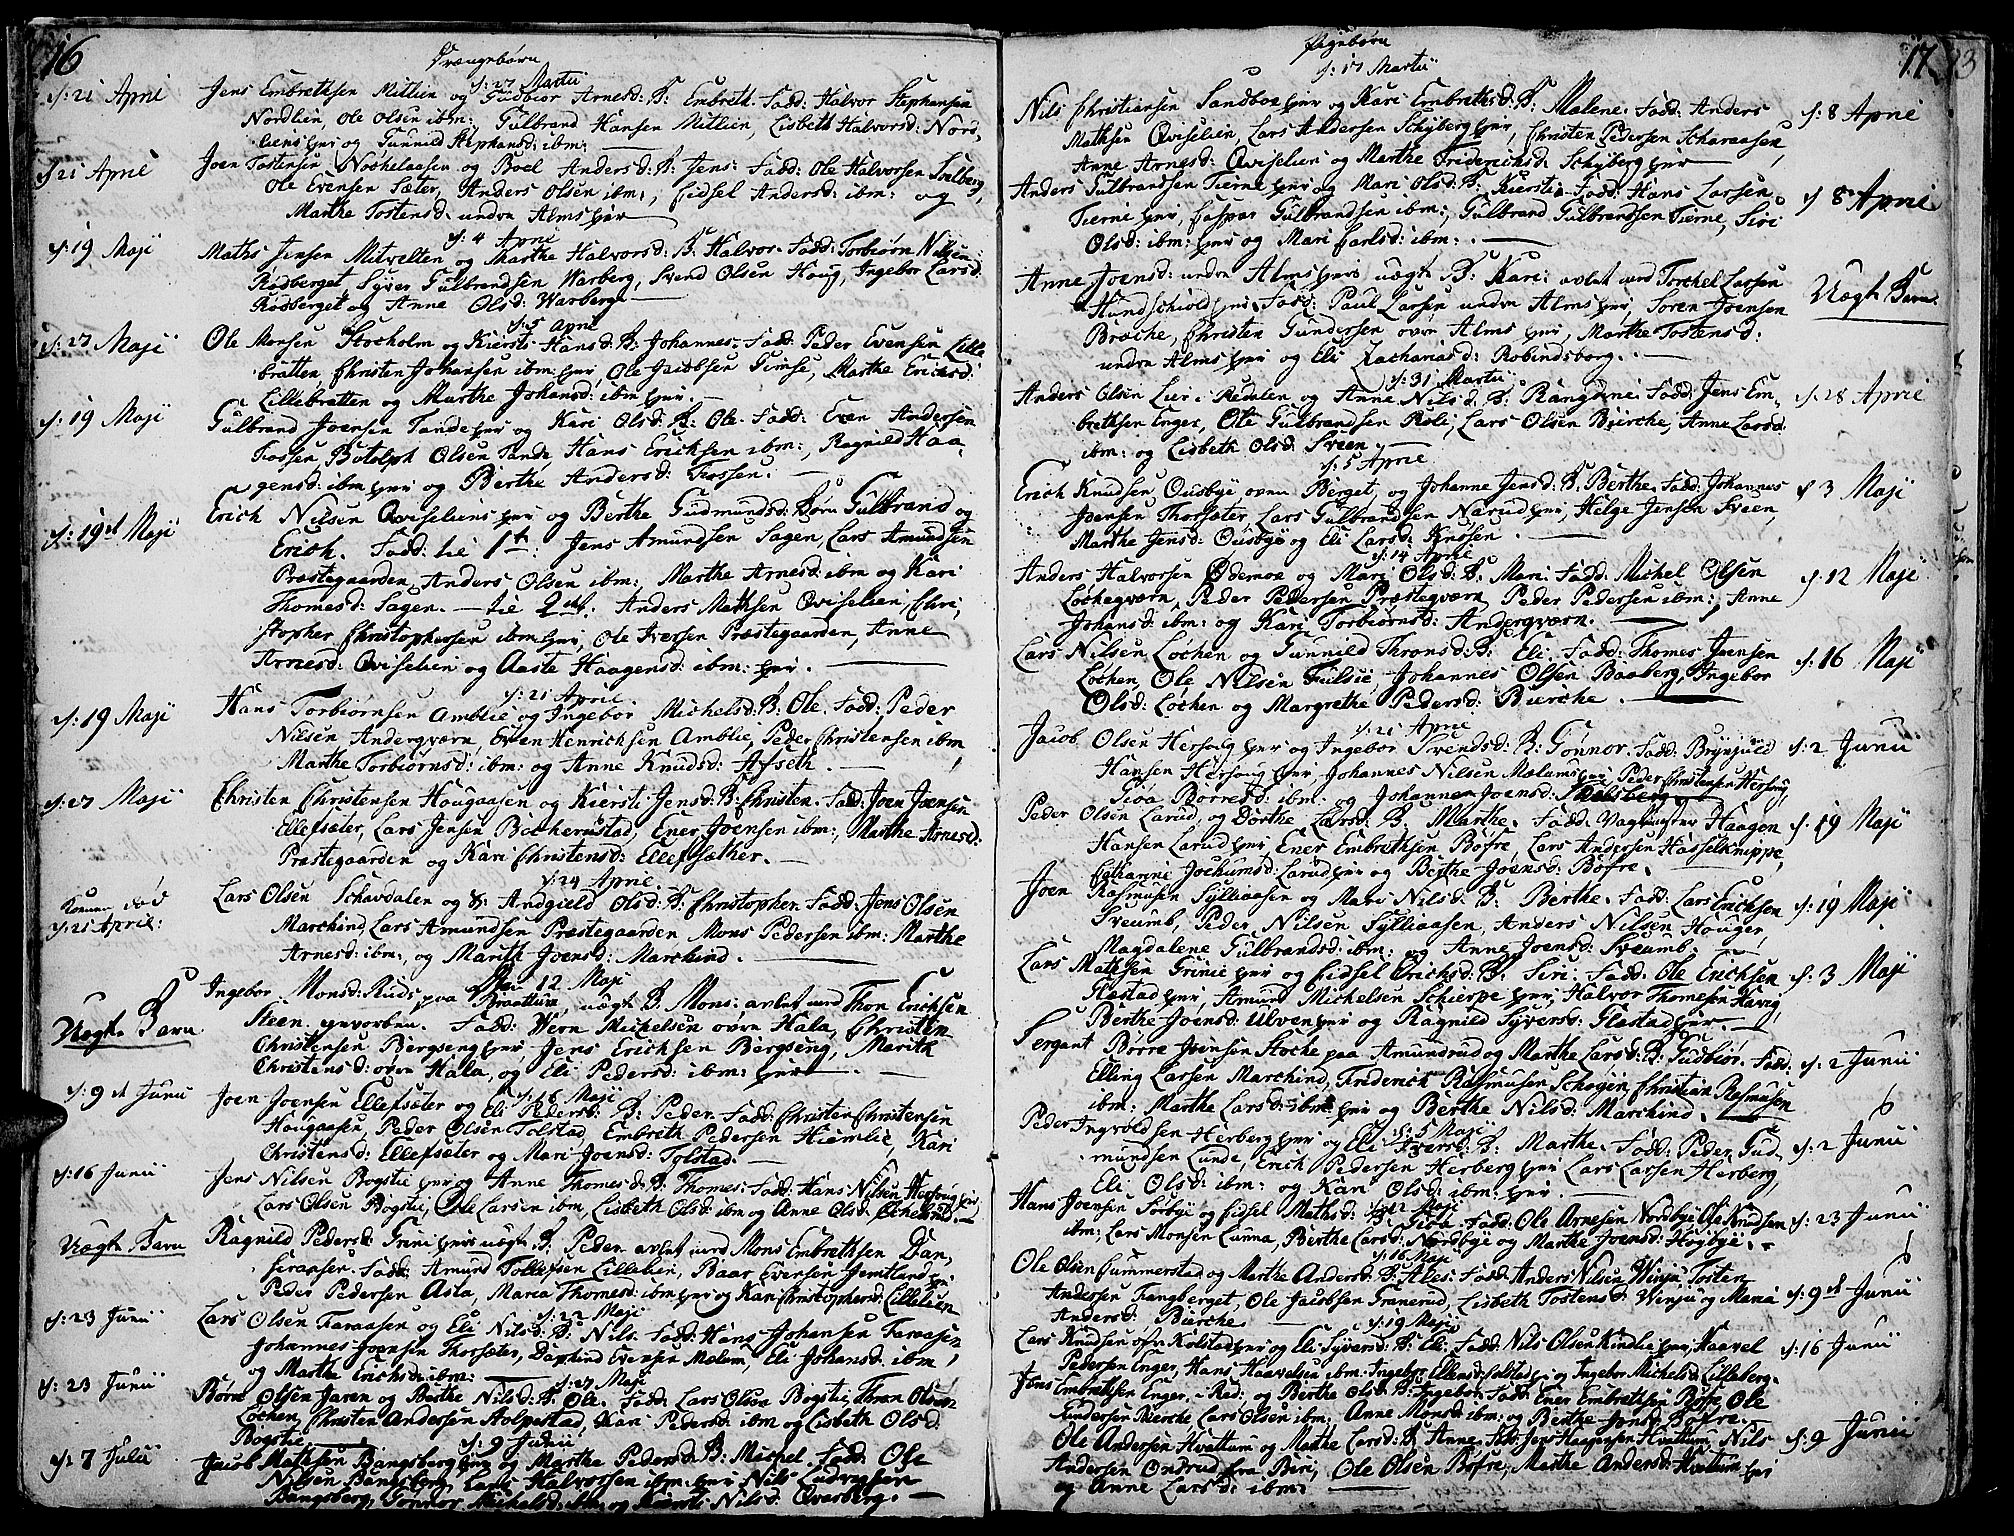 16
Drængebørn
d: 27 Martii
d: 21 April
Jens Embrethsen Mitlien og Gudbiør Arnesd: B: Embreth. Fadd: Halvor Stephansen
Nordlien, Ole Olsen ibm:, Gulbrand Hansen Mitlien, Lisbeth Halvorsd: Nord-
liens og Gunnild Stephansd: ibm:
d 21 April
Joen Tostensen Nochelaasen og Boel Andersd: B: Jens. Fadd: Ole Halvorsen Snelberg,
Ole Evensen Sæter, Anders Olsen ibm:, Eidsel Andersd: ibm: og
Marthe Tostensd: undre Alms
d: 4 April
d: 19 Maji
Mats Jensen Mitvelten og Marthe Halvorsd: B: Halvor. Fadd: Torbiørn Nilsen
Rødberget, Syver Gulbrandsen Warberg, Svend Olsen Houg, Ingebor Larsd:
Rødberget og Anne Olsd: Warberg
d: 5 April
d: 27 Maji
Ole Monsen Stocholm og Kiersti Hansd: B: Johannes. Fadd: Peder Evensen Lille
bratten, Christen Johansen ibm, Ole Jacobsen Gimse, Marthe Ericksd:
Lillebratten og Marthe Johansd: ibm
d: 19 Maji
Gulbrand Joensen Tande og Kari Olsd: B: Ole. Fadd: Even Andersen
Fossen, Botolph Olsen Tande, Hans Ericksen ibm:, Ragnild Haa
gensd: ibm og Berthe Andersd: Fossen.
d: 19de Maji
Erich Nilsen Qviselien og Berthe Gudmundsd: Børn Gulbrand og
Erich. Fadd: til 1te: Jens Amundsen Sagen, Lars Amundsen
Præstegaarden, Anders Olsen ibm:, Marthe Arnesd: ibm og Kari
Thomesd: Sagen. — til 2det: Anders Mathsen Qviselien, Chri-
stopher Christophersen ibm, Ole Iversen Præstegaarden, Anne
Arnesd: Qviselien og Aaste Haagensd: ibm:
d: 21 April.
d: 19 Maji
Hans Torbiørnsen Amblie og Ingebor Michelsd: B: Ole. Fadd: Peder
Nilsen Andergværn, Even Henrichsen Amblie, Peder Christensen ibm
Marthe Torbiørnsd: ibm: og Anne Knudsd: Afseth.
d: 27 Maji
Christen Christensen Hougaasen og Kiersti Jensd: B: Christen. Fadd: Joen Joensen
Ellefsæter, Lars Jensen Bocherustad, Ener Joensen ibm:, Marthe Arnesd:
Præstegaarden og Kari Christensd: Ellefsæther.
d: 24 April.
Konen død
d: 21 April:
Lars Olsen Schavdalen og Andgield Olsd: B: Christopher. Fadd: Jens Olsen
Marchind, Lars Amundsen Præstegaarden Mons Pedersen ibm: Marthe
Arnesd: ibm:, og Marith Joensd: Marchind.
12 Maji
Uægte Barn
Ingebor Monsd: Ruds, paa Braattun, uægte B: Mons. avlet med Thor Erichsen
Steen. gevorben. Fadd: Wern Michelsen øvre Hala, Christen
Christensen Bergseng, Jens Erichsen Bergseng, Marith
Christensd: øvre Hala, og Eli Pedersd: ibm:
d: 16 Maji
d: 9de Junii
Joen Joensen Ellefsæter og Eli Pedersd: B: Peder. Fadd: Christen Christensen
Hougaasen, Peder Olsen Tolstad, Embreth Pedersen Hiemlie, Kari
Christensd: Ellefsæter og Mari Joensd: Tolstad.
d: 16 Junii
Jens Nilsen Bogstie og Anne Thomesd: B: Thomes. Fadd: Hans Nilsen Hersoug
Lars Olsen Bogstie, Ole Larsen ibm, Lisbeth Olsd: ibm og Anne Olsd:
Uægte Barn
Ragnild Pedersd: Grini uægte B: Peder avlet med Mons Embrethsen Dan-
seraasen. Fadd: Amund Tollefsen Lillelien, Baar Evensen Jemtland
Peder Pedersen Asta, Maria Thomesd: ibm og Kari Christophersd: Lillelien
d: 22 Maji
d: 23 Junii
Lars Olsen Faraasen og Eli Nilsd: B: Nils. Fadd: Hans Johansen Faraasen
Johannes Joensen Thorsæter, Daphind Evensen Mælum, Eli Johansd: ibm,
og Marthe Erichsd: ibm:
d: 27 Maji
d: 23 Junii
Børre Olsen Jaren og Berthe Nilsd: B: Ole. Fadd: Lars Olsen Bogstie, Thron Olsen
Løchen, Christen Andersen Holpestad, Kari Pedersd: ibm og Lisbeth Olsd:
Bogstie
d: 9 Junii
d: 7 Julii
Jacob Mathsen Bangsberg og Marthe Pedersd: B: Michel. Fadd: Ole
Nilsen Bangsberg, Lars Halvorsen ibm Nils Ludvigsen
Bangsberg, Gønnor Michelsd: ibm og Kiersti Nilsd: Qvarberg.
Pigebørn
17
d: 17 Martii
Nils Christiansen Sandboe og Kari Embrethsd: B: Malene. Fadd: Anders
d: 8 April
Mathsen Qviselien, Lars Andersen Schyberg, Christen Pedersen Scharaasen,
Anne Arnesd: Qviselien og Marthe Friderichsd: Schyberg
Anders Gulbrandsen Tierne og Mari Olsd: B: Kiersti. Fadd: Hans Larsen
d 8 April
Tierne, Caspar Gulbrandsen ibm:, Gulbrand Gulbrandsen Tierne, Siri
Olsd: ibm: og Mari Carlsd: ibm:
Anne Joensd: undre Alms uægte B: Kari. avlet med Torchel Larsen
Uægte Barn.
Hundschiold, Fadd: Paul Larsen undre Alms, Soren Joensen
Broche, Christen Gundersen øvre Alms, Marthe Tostensd:
undre Alms og Eli Zachariasd: Robindsborg.
d: 31 Martii
Anders Olsen Lier i Redalen og Anne Nilsd: B: Rangdine. Fadd: Jens Em-
d: 28 April
brethsen Enger, Ole Gulbrandsen Roli, Lars Olsen Bierche, Anne Larsd:
ibm: og Lisbeth Olsd: Sveen.
d: 5 April
Erich Knudsen Ousbye oven Berget, og Johanne Jensd: B: Berthe. Fadd: Johannes
d 3 Maji
Joensen Thorsæter, Lars Gulbrandsen Narud, Helge Jensen Sveen,
Marthe Jensd: Ousbye og Eli Larsd: Knussen.
d: 14 April
Anders Halvorsen Ødemoe og Mari Olsd: B: Mari. Fadd: Michel Olsen
d: 12 Maji
Løchegværn, Peder Pedersen Præstegværn, Peder Pedersen ibm:, Anne
Johansd: ibm: og Kari Torbiørnsd: Andergværn.
Lars Nilsen Løchen og Gunnild Thronsd: B: Eli. Fadd: Thomes Joensen
d: 16 Maji
Løchen, Ole Nilsen Fulsie, Johannes Olsen Baaberg, Ingebor
Olsd: Løchen og Margrethe Pedersd: Bierche.
d: 21 April
Jacob Olsen Hersoug og Ingebor Svendsd: B: Gønnor. Fadd: Brynjuld
d: 2 Junii
Hansen Hersoug, Johannes Nilsen Mælum, Peder Christensen Hersoug,
Gioa Børresd: ibm: og Johanna Joensd:
Peder Olsen Larud, og Dorthe Larsd: B: Marthe. Fadd: Vagtmester Haagen
d: 19 Maji
Hansen Larud, Ener Embrethsen Bøfre, Lars Andersen Hasselknippe,
Catharine Jochumsd: Larud og Berthe Joensd: Bøfre.
Joen Rasmusen Sylliaasen og Mari Nilsd: B: Berthe. Fadd: Lars Erichsen
d: 19 Maji
Sveumb, Peder Nilsen Sylliaasen, Anders Nilsen Houger,
Magdalene Gulbrandsd: ibm: og Anne Joensd: Sveumb.
Lars Mathsen Grinie og Eidsel Erichsd: B: Siri. Fadd: Ole Erichsen
d: 3 Maji
Glæstad, Amund Michelsen Schierpe, Halvor Thomesen Høvig,
Berthe Joensd: Ulven og Ragnild Syversd: Glæstad.
Sergant Børre Joensen Stoche paa Amundrud og Marthe Larsd: B: Gudbiør. Fadd:
d: 2 Junii
Elling Larsen Marchind, Friderich Rasmusen Schogen, Christian Rasmusen
ibm: Marthe Larsd: ibm og Berthe Nilsd: Marchind.
d: 5 Maji
Peder Ingvoldsen Herberg og Eli Iversd: B: Marthe. Fadd: Peder Gud-
d: 2 Junii
mundsen Lunde, Erich Pedersen Herberg Lars Larsen Herberg,
Eli Olsd: ibm: og Kari Olsd: ibm:
d: 12 Maji
Hans Joensen Sorbye og Eidsel Mathsd: B: Gioa. Fadd: Ole Arnesen Nordbye, Ole Knudsen
d: 23 Junii
ibm: Lars Monsen Lunna, Berthe Larsd: Nordbye og Marthe Joensd: Høgbye.
d: 16 Maji
Ole Olsen Cummerstad og Marthe Andersd: B: Ales. Fadd: Anders Nilsen Winju, Tosten
d: 9de Junii
Andersen Fangberget, Ole Jacobsen Granerud, Lisbeth Tostensd: Winju og Maria
Andersd: Bierche
d: 19 Maji
Lars Knudsen øfre Kolstad og Eli Syversd: B: Eli. Fadd: Nils Olsen Kindlie, Haavel
d: 16 Junii
Pedersen Enger, Hans Haavelsen ibm: Ingebor Ellensd: Kolstad og Ingebor Michelsd: Lilleberg.
Jens Embrethsen Enger i Rød: og Berthe Olsd: B: Ingebor. Fadd: Ener Embrethsen Bøfre, Ole
Gundersen Bierche, Lars Olsen ibm:, Anne Monsd: ibm: og Berthe Jensd: Bøfre.
Ole Andersen Hvattum og Marthe Larsd: B: Anne. Fadd: Jens Haagensen Hvattum, Nils
d: 9 Junii
Andersen Ondrud fra Biri, Ole Olsen Bøfre, Marthe Andersd: Hvattum
og Anne Larsd: ibm: